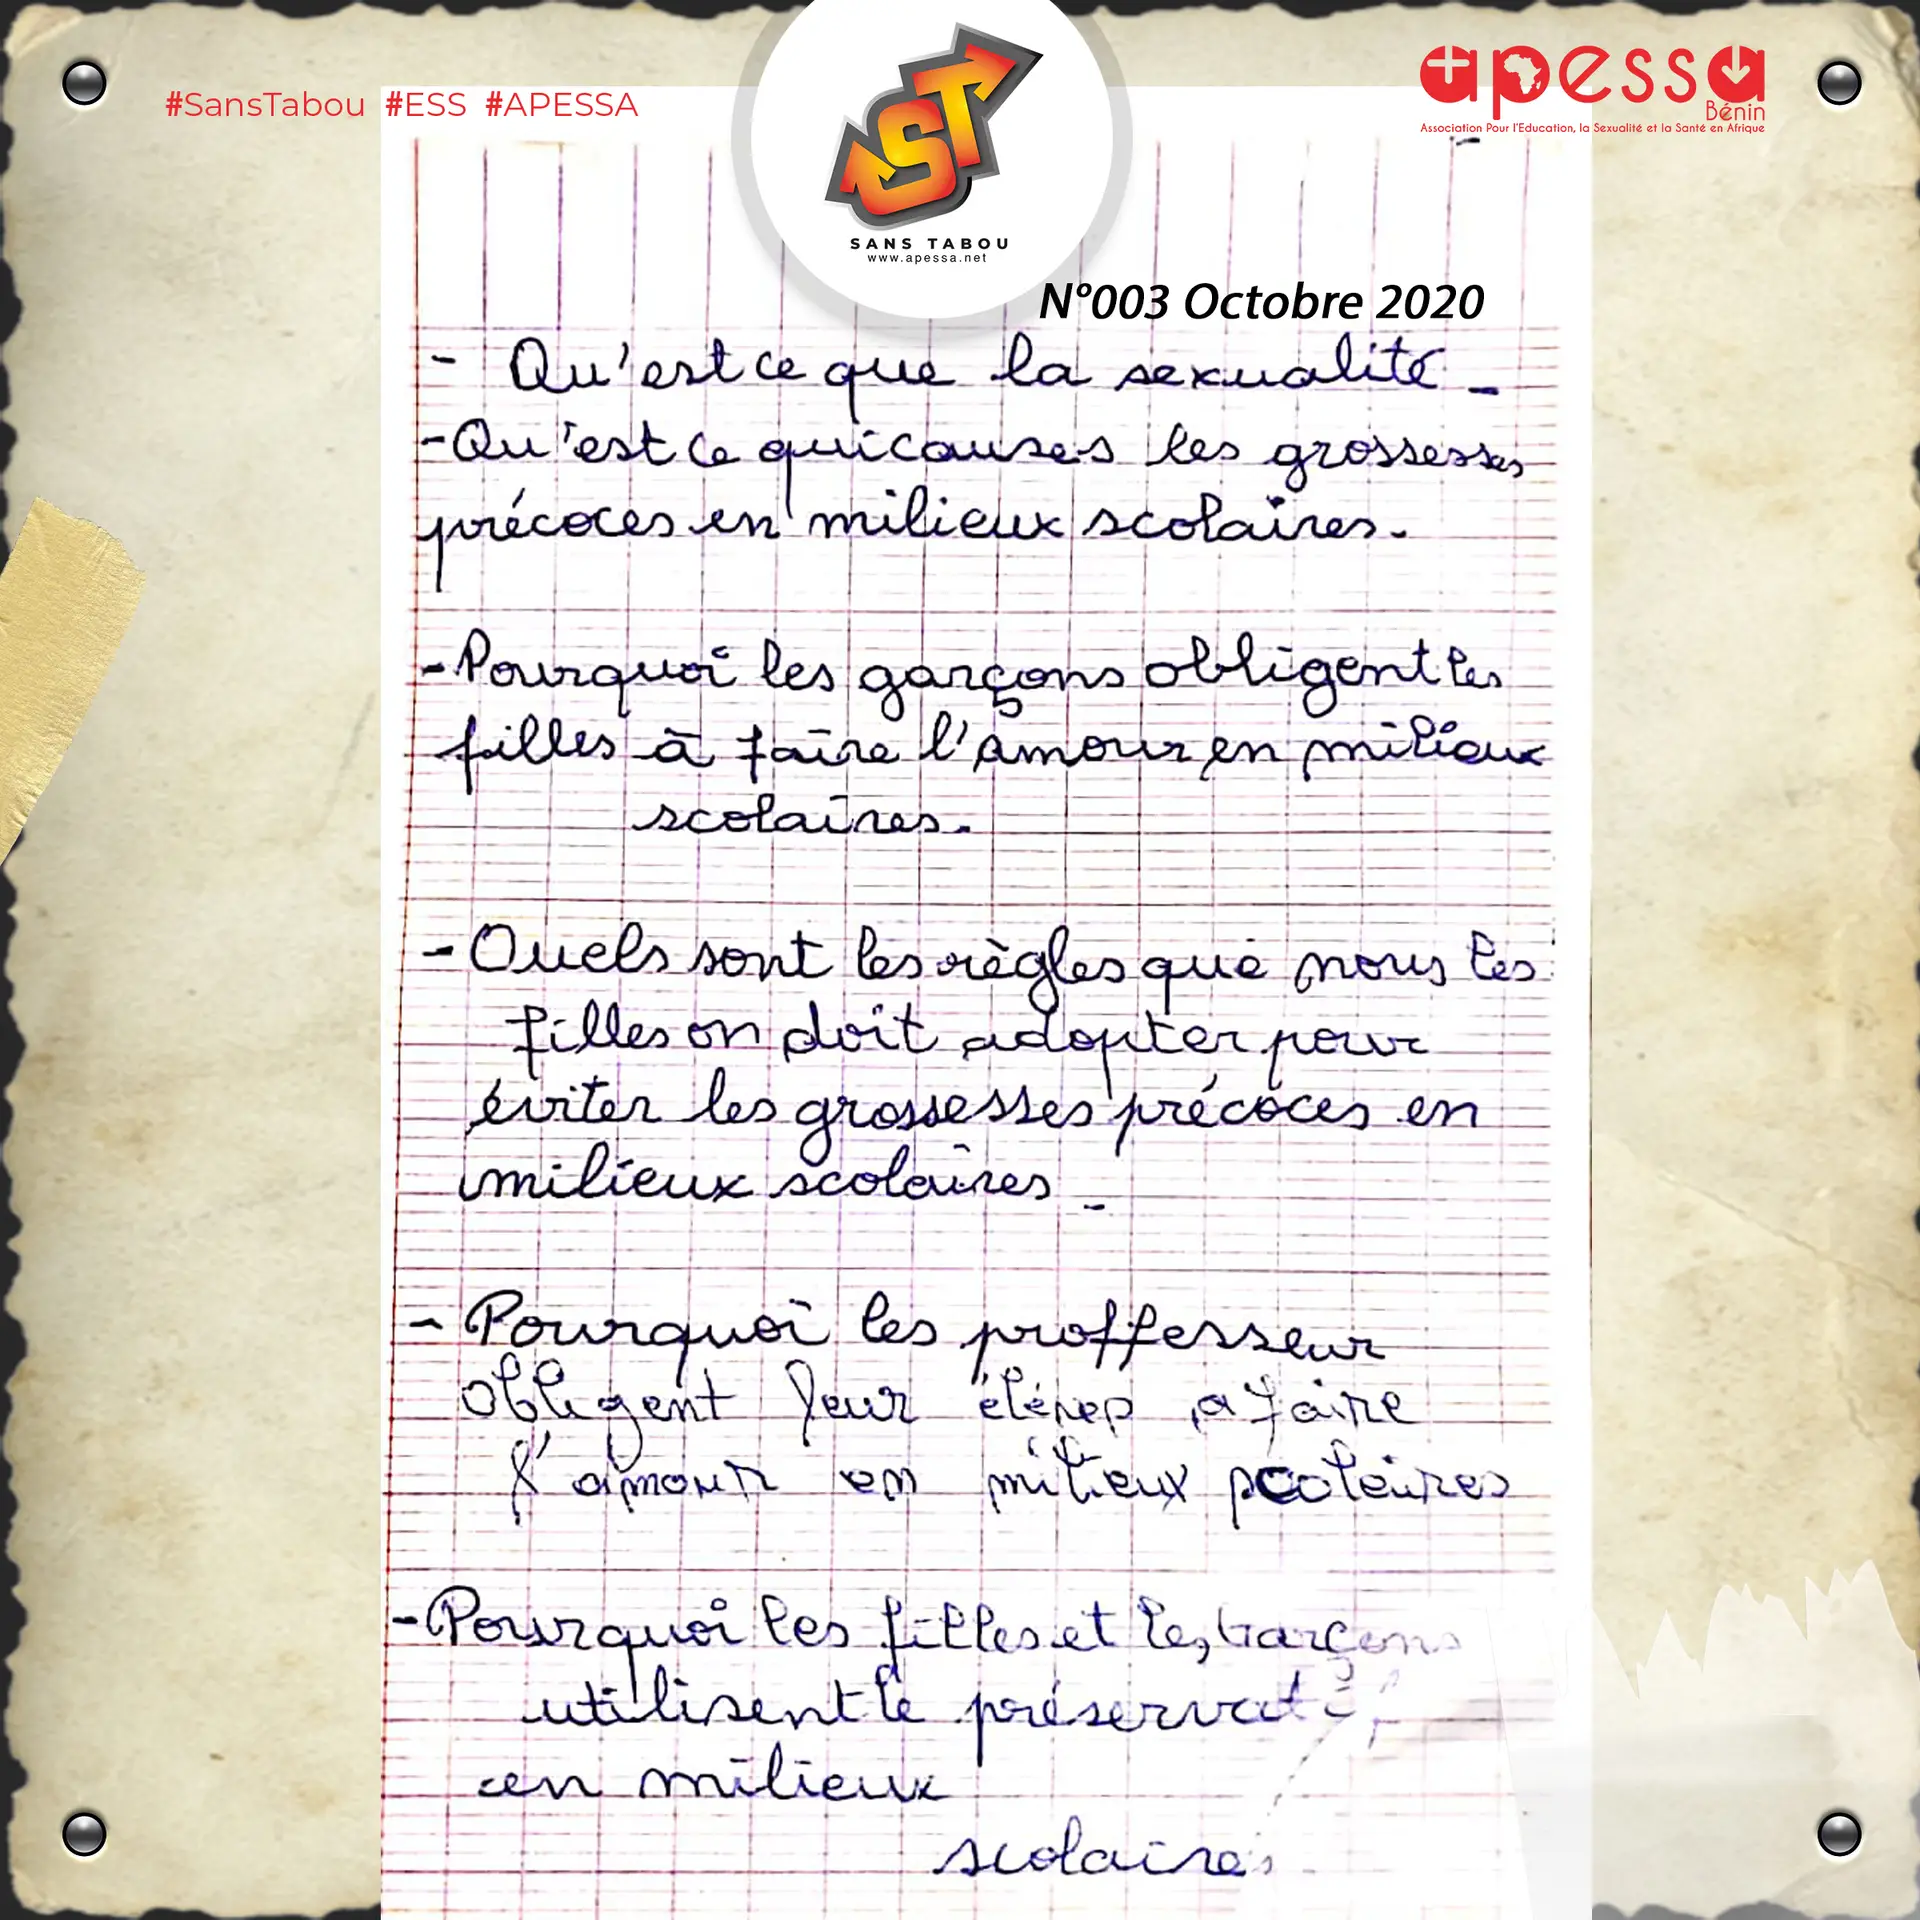 #SansTabou #ESS #APESSA
ST
SANS TABOU
www.apessa.net
apessa
Bénin
Association Pour l'Education, la Sexualité et la Santé en Afrique
N°003 Octobre 2020
- Qu'est ce que la sexualité -
- Qu'est ce qui causes les grossesses
précoces en milieux scolaires.
- Pourquoi les garçons obligent les
filles à faire l'amour en milieux
scolaires.
- Quels sont les règles que nous les
filles on doit adopter pour
éviter les grossesses précoces en
milieux scolaires -
- Pourquoi les proffesseur
obligent leur élèves a faire
l'amour en milieux scolaires
- Pourquoi les filles et les garçons
utilisent le préservatif
en milieux
scolaires.